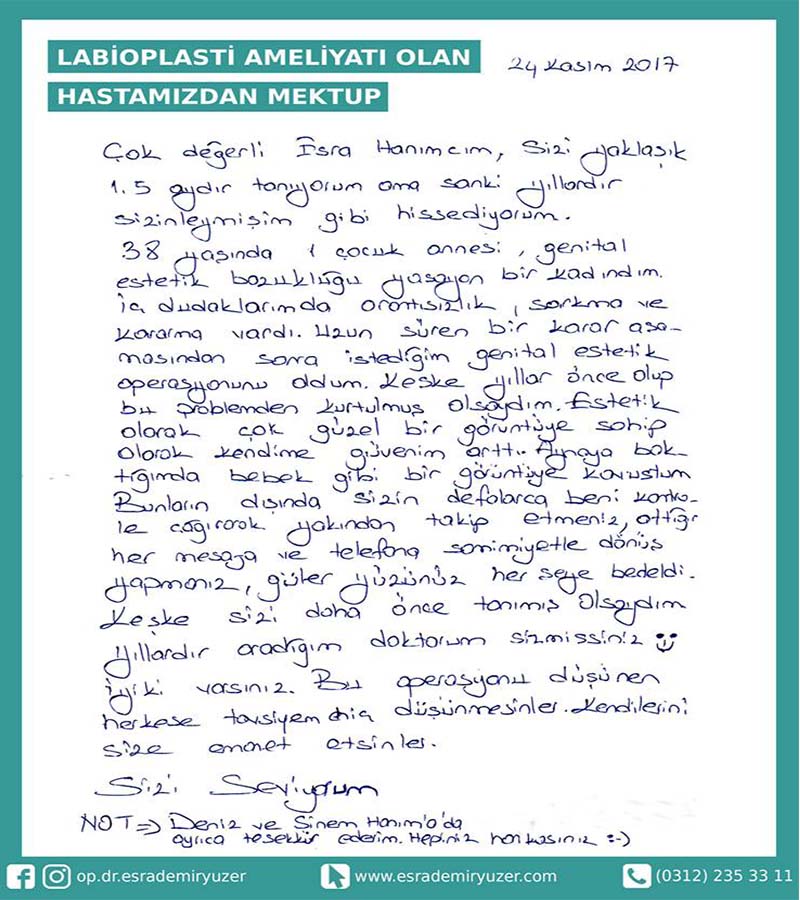 LABİOPLASTİ AMELİYATI OLAN
HASTAMIZDAN MEKTUP
24 Kasım 2017
Çok değerli Esra Hanımcım, Sizi yaklaşık
1.5 aydır tanıyorum ama sanki yıllardır
sizinleymişim gibi hissediyorum.
38 yaşında 1 çocuk annesi, genital
estetik bozukluğu yaşayan bir kadındım.
İç dudaklarımda orantısızlık, sarkma ve
kararma vardı. Uzun süren bir karar aşa-
masından sonra istediğim genital estetik
operasyonunu oldum. Keşke yıllar önce olup
bu problemden kurtulmuş olsaydım. Estetik
olarak çok güzel bir görüntüye sahip
olarak kendime güvenim arttı. Aynaya bak-
tığımda bebek gibi bir görüntüye kavuştum
Bunların dışında sizin defalarca beni kontro-
le çağırarak yakından takip etmeniz, attığı
her mesaja ve telefona samimiyetle dönüş
yapmanız, güler yüzünüz her şeye bedeldi.
Keşke sizi daha önce tanımış olsaydım
yıllardır aradığım doktorum sizmişsiniz
iyiki varsınız. Bu operasyonu düşünen
herkese tavsiyem hiç düşünmesinler. Kendilerini
size emanet etsinler.
Sizi Seviyorum
NOT => Deniz ve Sinem Hanım'a da
ayrıca teşekkür ederim. Hepiniz harikasınız :-)
op.dr.esrademiryuzer
www.esrademiryuzer.com
(0312) 235 33 11